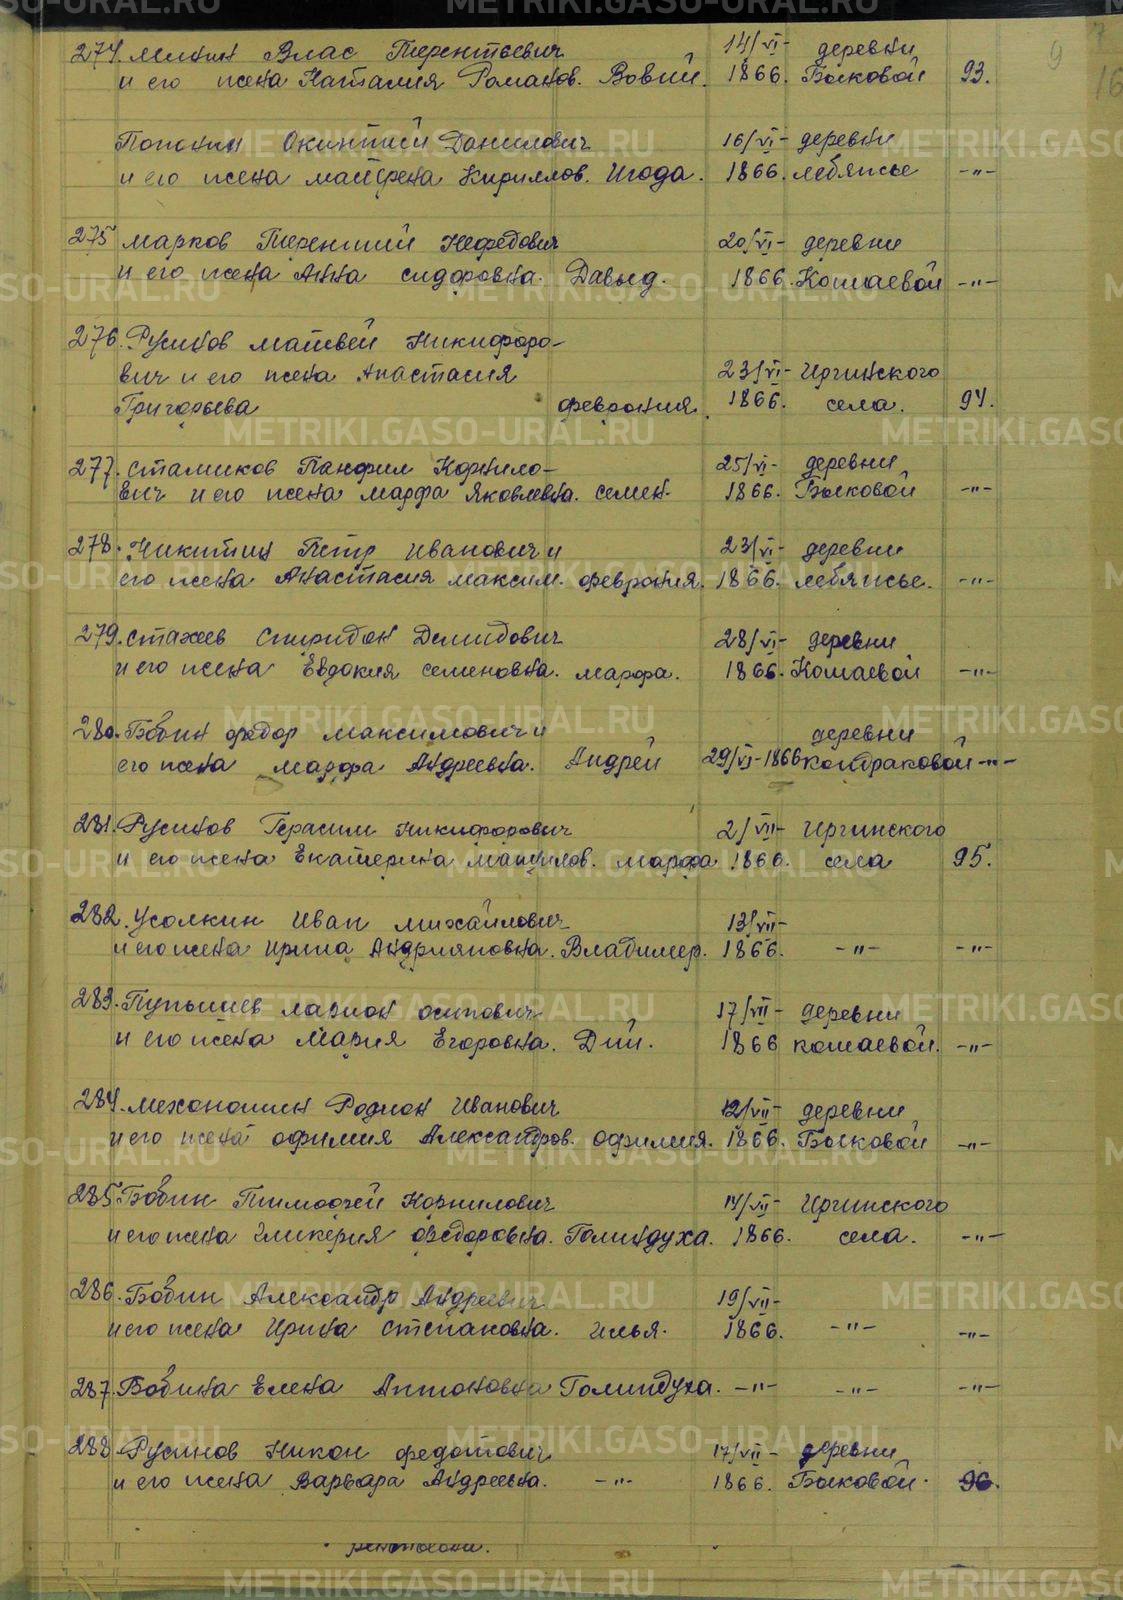 274. Минин Влас Терентьевич 14/VI- деревни
и его жена Наталия Романов. Вовий. 1866. Быковой 93.
Попонин Окинтий Данилович 16/VI- деревни
и его жена Матрена Кириллов. Июда. 1866. Лебяжье -"-
275 Марков Терентий Нефедович 20/VI- деревни
и его жена Анна Сидоровна. Давыд. 1866. Кошаевой -"-
276. Русинов Матвей Никифоро-
вич и его жена Анастасия 23/VI- Иргинского
Григорьева Феврония. 1866. села. 94.
277. Стамиков Панфил Корнило- 25/VI- деревни
вич и его жена Марфа Яковлевна. Семен. 1866. Быковой -"-
278. Никитин Петр Иванович и 23/VI- деревни
его жена Анастасия Максим. Феврония. 1866. Лебяжье. -"-
279. Стахеев Спиридон Демидович 28/VI- деревни
и его жена Евдокия Семеновна. Марфа. 1866. Кошаевой -"-
280. Бобин Федор Максимович и деревни
его жена Марфа Андреевна. Андрей 29/VI-1866 Кондраковой -"-
281. Русинов Герасим Никифорович 2/VII- Иргинского
и его жена Екатерина Мануилов. Марфа 1866. села 95.
282. Усолкин Иван Михайлович 13/VII-
и его жена Ирина Андрияновна. Владимер. 1866. -"- -"-
283. Пупышев Ларион Осипович 17/VII- деревни
и его жена Мария Егоровна. Дий. 1866 Кошаевой. -"-
284. Мехоношин Родион Иванович 12/VII- деревни
и его жена Офимия Александров. Офимия. 1866. Быковой -"-
285. Бобин Тимофей Корнилович 14/VII- Иргинского
и его жена Гликерия Федоровна. Голиндуха. 1866. села. -"-
286. Бобин Александр Андреевич 19/VII-
и его жена Ирина Степановна. Илья. 1866. -"- -"-
287. Бобина Елена Антоновна Голиндуха. -"- -"- -"-
288 Русинов Никон Федотович 17/VII- деревни
и его жена Варвара Андреевна. -"- 1866. Быковой. 96.
METRIKI.GASO-URAL.RU